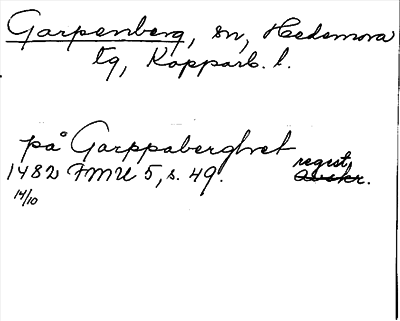 Garpenberg, sn, Hedemora
tg, Kopparb. l.
på Garppaberghet
regest,
1482 FMU 5, s. 49. avskr.
14/10